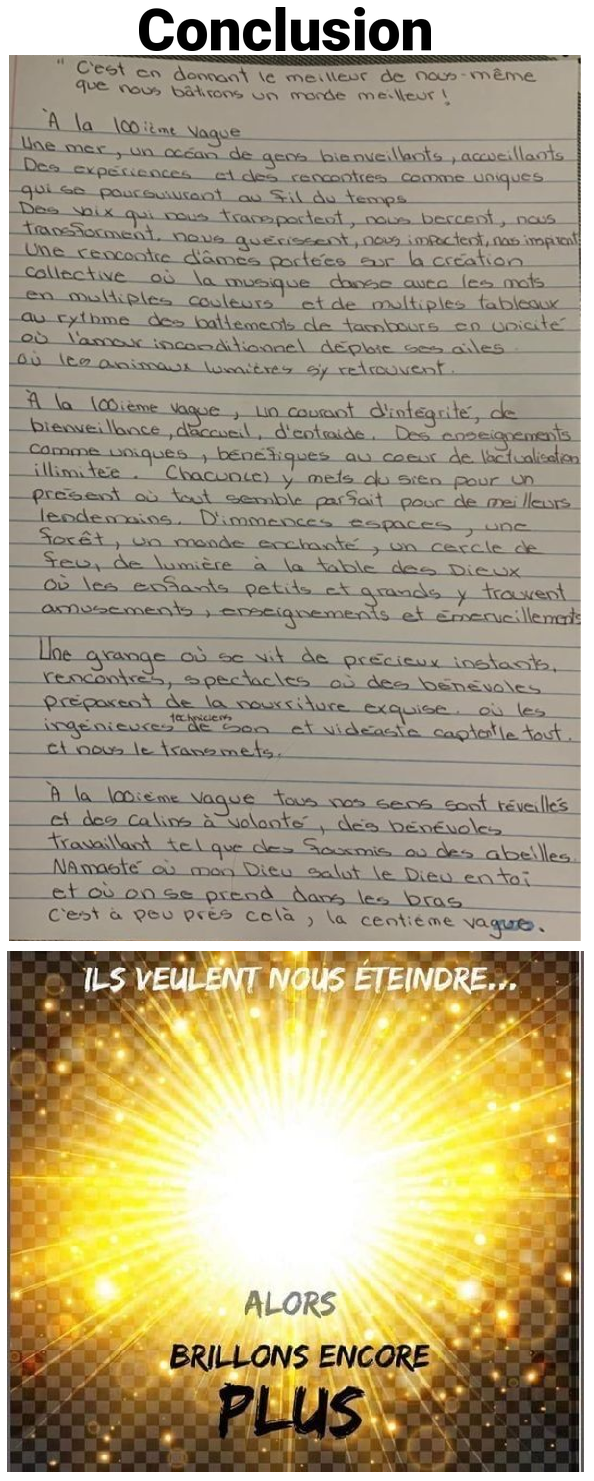 Conclusion
" C'est en donnant le meilleur de nous-même
que nous bâtirons un monde meilleur !
À la 100ième vague
Une mer, un océan de gens bienveillants, accueillants
Des expériences et des rencontres comme uniques
qui se poursuivront au fil du temps
Des voix qui nous transportent, nous bercent, nous
transforment, nous guérissent, nous impactent, nous inspirent
Une rencontre d'âmes portées sur la création
collective où la musique danse avec les mots
en multiples couleurs et de multiples tableaux
au rythme des battements de tambours en unicité
où l'amour inconditionnel déploie ses ailes
où les animaux lumières s'y retrouvent.
À la 100ième vague, un courant d'intégrité, de
bienveillance, d'accueil, d'entraide. Des enseignements
comme uniques, bénéfiques au coeur de l'actualisation
illimitée. Chacun(e) y mets du sien pour un
présent où tout semble parfait pour de meilleurs
lendemains. D'immences espaces, une
forêt, un monde enchanté, un cercle de
feu, de lumière à la table des Dieux
où les enfants petits et grands y trouvent
amusements, enseignements et émerveillements
Une grange où se vit de précieux instants,
rencontres, spectacles où des bénévoles
préparent de la nourriture exquise. où les
ingénieures techniciens de son et vidéaste capte le tout.
et nous le transmets.
À la 100ième vague tous nos sens sont réveillés
et des calins à volonté, des bénévoles
travaillant tel que des fourmis ou des abeilles.
NAmasté où mon Dieu salut le Dieu en toi
et où on se prend dans les bras
C'est à peu près celà, la centième vague.
ILS VEULENT NOUS ÉTEINDRE...
ALORS
BRILLONS ENCORE
PLUS